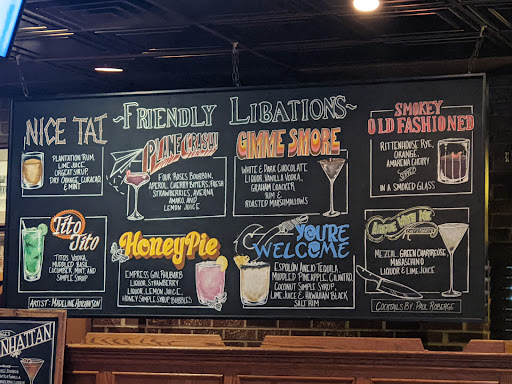 ~FRIENDLY LIBATIONS~
NICE TAI
PLANTATION RUM,
LIME JUICE,
ORGEAT SYRUP,
DRY ORANGE CURACAO
& MINT
PLANE CRASH
FOUR ROSES BOURBON,
APEROL, CHERRY BITTERS, FRESH
STRAWBERRIES, AVERNA
AMARO, AND
LEMON JUICE
GIMME SMORE
WHITE & DARK CHOCOLATE
LIQUOR, VANILLA VODKA,
GRAHAM CRACKER
RIM &
ROASTED MARSHMALLOWS
SMOKEY
OLD FASHIONED
RITTENHOUSE RYE,
ORANGE,
AMARENA CHERRY
IN A SMOKED GLASS
Tito
Tito
TITOS VODKA,
MUDDLED BASIL
CUCUMBER, MINT, AND
SIMPLE SYRUP
ARTIST: MADELINE HUTCHINSON
HoneyPie
EMPRESS GIN, RHUBARB
LIQUOR, STRAWBERRY
LIQUOR, LEMON JUICE,
HONEY SIMPLE SYRUP, BUBBLES
YOU'RE
WELCOME
ESPOLÓN ANEJO TEQUILA,
MUDDLED PINEAPPLE, CILANTRO
COCONUT SIMPLE SYRUP,
LIME JUICE & HAWAIIAN BLACK
SALT RIM
WITH ME
MEZCAL, GREEN CHARTREUSE,
MARASCHINO
LIQUOR & LIME JUICE
COCKTAILS BY: PAUL ROBERGE
NHATTAN